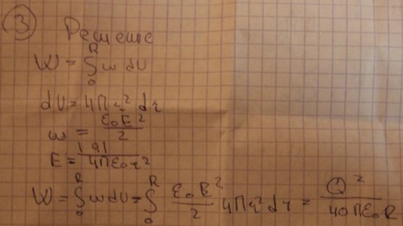 3 Решение
W = ∫₀ᴿ w dV
dV = 4πr² dr
w = ε₀E²/2
E = |q|/4πε₀r²
W = ∫₀ᴿ w dV = ∫₀ᴿ ε₀E²/2 4πr² dr = Q²/40πε₀R